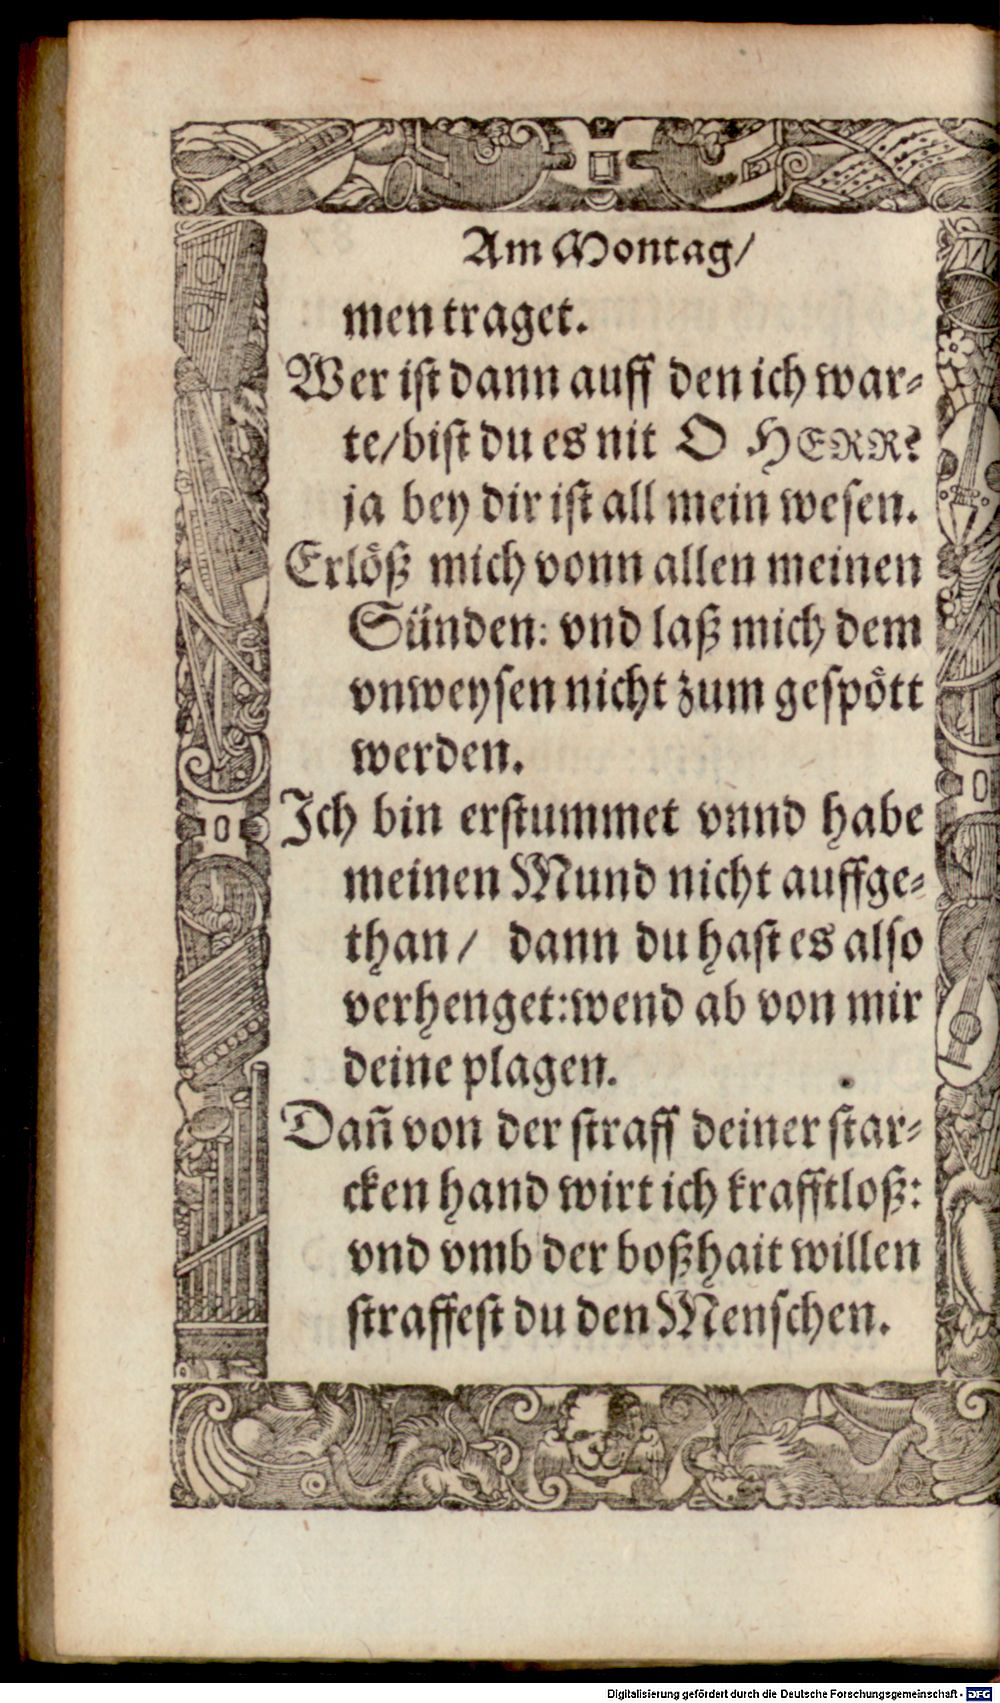 Am Montag/
men traget.
Wer ist dann auff den ich war⸗
te/bist du es nit O HERR?
ja bey dir ist all mein wesen.
Erlöß mich vonn allen meinen
Sünden: vnd laß mich dem
vnweysen nicht zum gespött
werden.
Ich bin erstummet vnnd habe
meinen Mund nicht auffge⸗
than/ dann du hast es also
verhenget:wend ab von mir
deine plagen.
Dañ von der straff deiner star⸗
cken hand wirt ich krafftloß:
vnd vmb der boßhait willen
straffest du den Menschen.
Digitalisierung gefördert durch die Deutsche Forschungsgemeinschaft - DFG